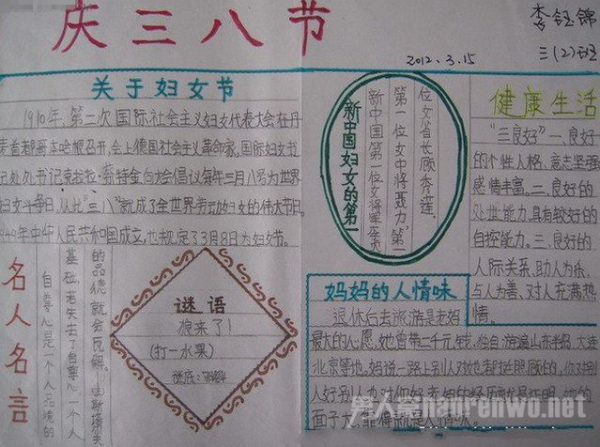 庆三八节
李钰锦
三(2)班
2012.3.15
关于妇女节
1910年,第二次国际社会主义妇女代表大会在丹
麦首都哥本哈根召开,会上德国社会主义革命家,国际妇女书
记处书记克拉拉·蔡特金向大会倡议每年三月八号为世界
妇女斗争日,从此"三八"就成了全世界劳动妇女的伟大节日。
中华人民共和国成立,也规定了3月8日为妇女节。
新中国妇女的第一
新中国第一位女将军
第一位女中将聂力、第一
位女省长顾秀莲、
健康生活
"三良好"一、良好
的个性人格,意志坚强
感情丰富。二、良好的
处世能力,具有较好的
自控能力。三、良好的
人际关系,助人为乐,
与人为善,对人充满热
情。
名人名言
自尊心是一个人品德的
基础。若失去了自尊心,一个人
的品德就会瓦解。
谜语
狼来了!
(打一水果)
谜底:
妈妈的人情味
退休后去旅游是老妈
最大的心愿,她曾带二千元钱,独自 海 山东半岛,大连
北京等地。妈说一路上别人对她都挺照顾的,你对别
人好别人也对你好
面子大,靠得就是人情味。
男人窝haorenwo.net